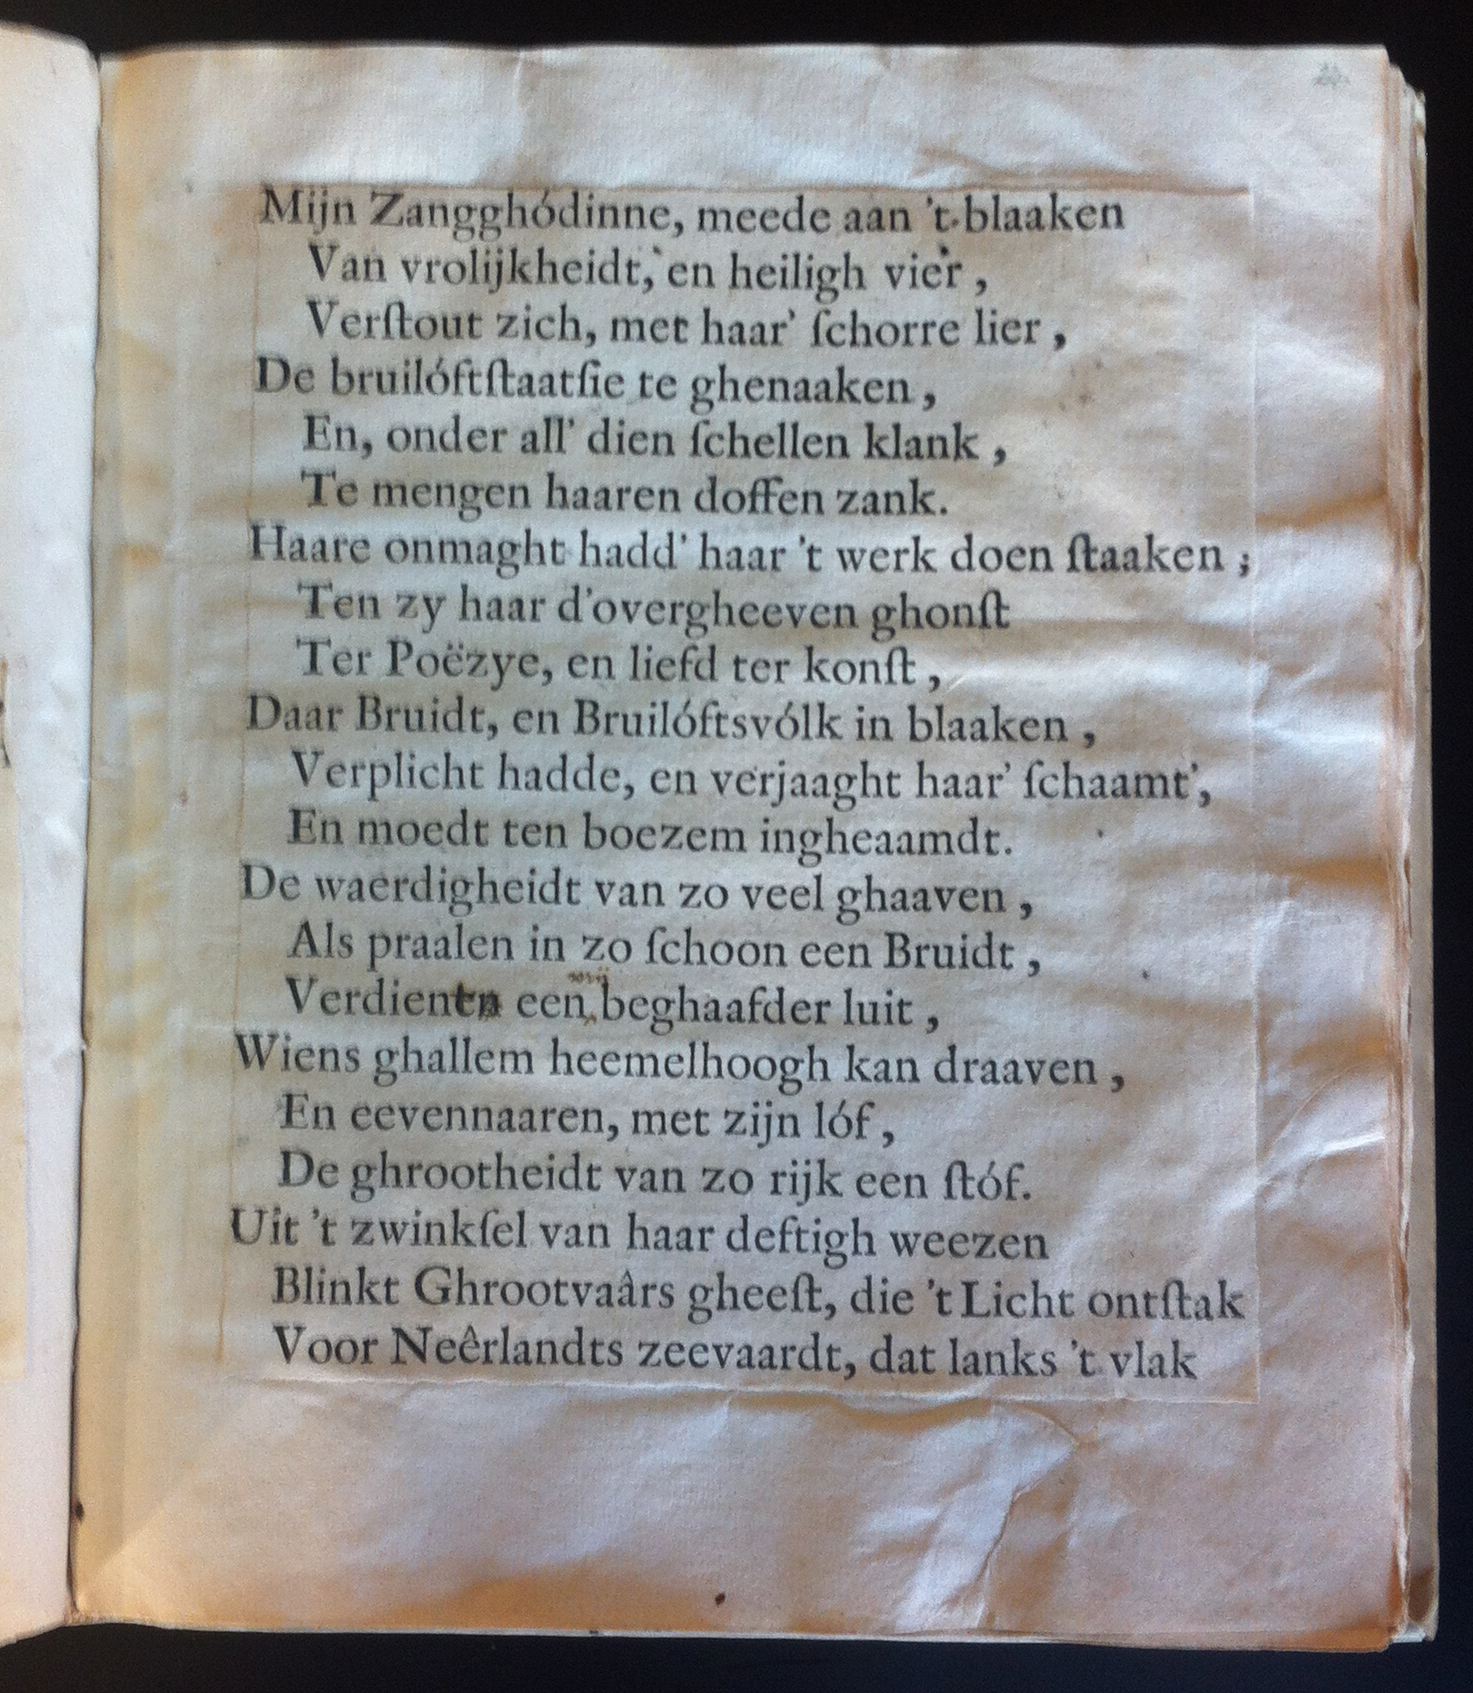 Mijn Zangghódinne, meede aan 't blaaken
Van vrolijkheidt, en heiligh vier,
Verſtout zich, met haar' ſchorre lier,
De bruilóftſtaatſie te ghenaaken,
En, onder all' dien ſchellen klank,
Te mengen haaren doffen zank.
Haare onmaght hadd' haar 't werk doen ſtaaken;
Ten zy haar d'overgheeven ghonſt
Ter Poëzye, en liefd ter konſt,
Daar Bruidt, en Bruilóftsvólk in blaaken,
Verplicht hadde, en verjaaght haar' ſchaamt',
En moedt ten boezem ingheaamdt.
De waerdigheidt van zo veel ghaaven,
Als praalen in zo ſchoon een Bruidt,
Verdienen een beghaafder luit,
Wiens ghallem heemelhoogh kan draaven,
En eevennaaren, met zijn lóf,
De ghrootheidt van zo rijk een ſtóf.
Uit 't zwinkſel van haar deftigh weezen
Blinkt Ghrootvaârs gheeſt, die 't Licht ontſtak
Voor Neêrlandts zeevaardt, dat lanks 't vlak